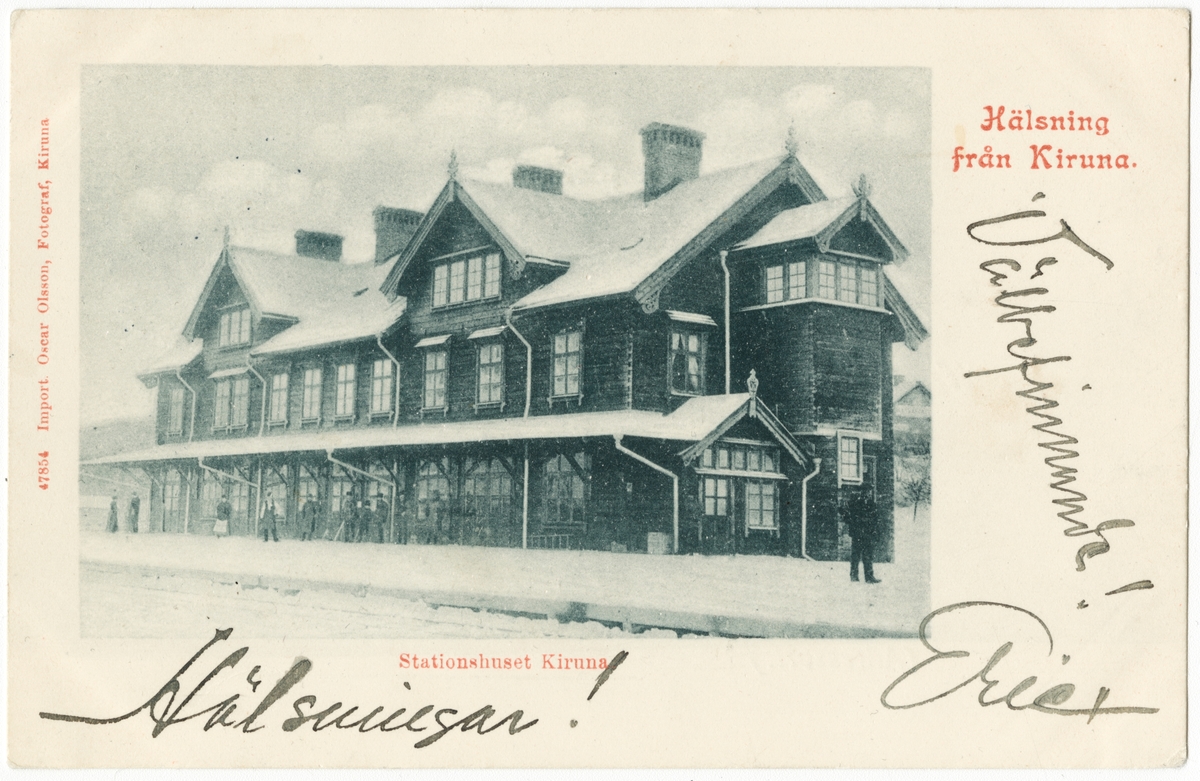 Hälsning
från Kiruna.
Välbefinnande!
47854 Import. Oscar Olsson, Fotograf, Kiruna
Stationshuset Kiruna
Hälsningar!
Eric